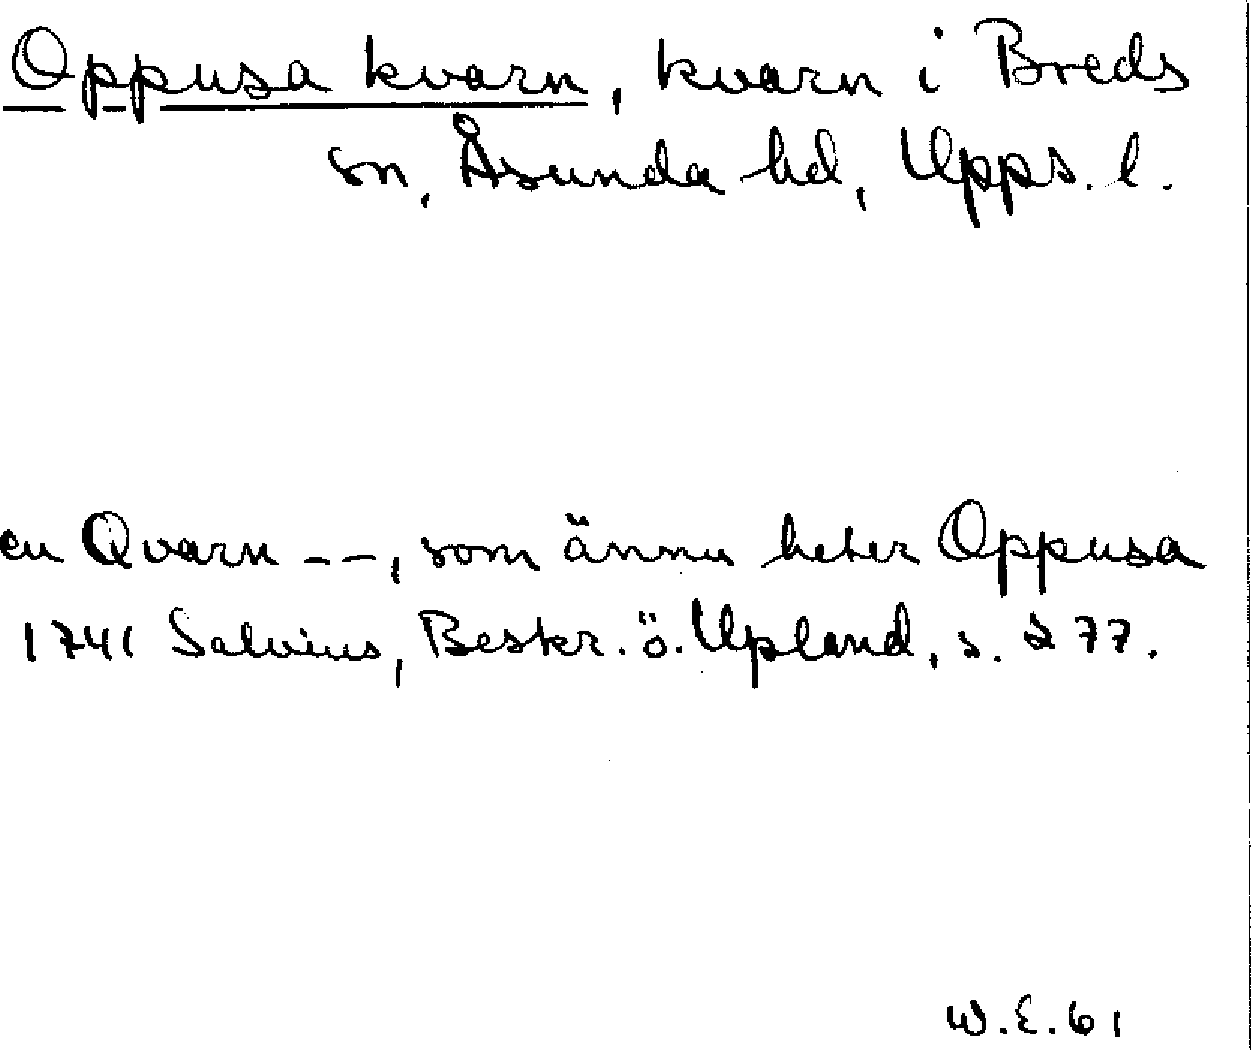 Oppusa kvarn, kvarn i Breds
sn, Åsunda hd, Upps. l.
en Qvarn --, som ännu heter Oppusa
1741 Salvius, Beskr. ö. Upland, s. 277.
W.E.61